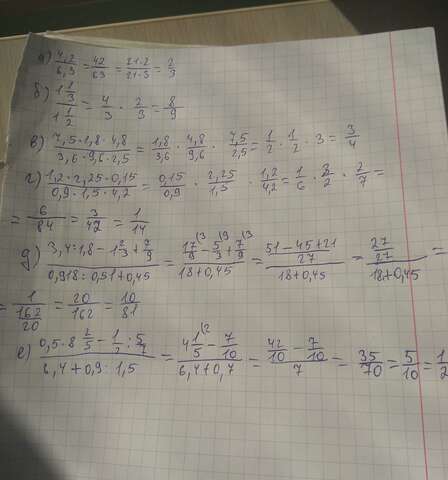 а) 4,2/6,3 = 42/63 = 21·2/21·3 = 2/3
б) 1 1/3 / 1 1/2 = 4/3 · 2/3 = 8/9
в) 7,5·1,8·4,8 / 3,6·9,6·2,5 = 1,8/3,6 · 4,8/9,6 · 7,5/2,5 = 1/2 · 1/2 · 3 = 3/4
г) 1,2·2,25·0,15 / 0,9·1,5·4,2 = 0,15/0,9 · 2,25/1,5 · 1,2/4,2 = 1/6 · 3/2 · 2/7 =
= 6/84 = 3/42 = 1/14
д) 3,4:1,8 - 1 2/3 + 7/9 / 0,918:0,51+0,45 = 17/9 (3 - 5/3 (9 + 7/9 (3 / 18+0,45 = 51-45+21/27 / 18+0,45 = 27/27 / 18+0,45 =
= 1 / 162/20 = 20/162 = 10/81
е) 0,5·8 2/5 - 1/2 : 5/7 / 6,4+0,9·1,5 = 4 1/5 (2 - 7/10 / 6,4+0,7 = 42/10 - 7/10 / 7 = 35/70 = 5/10 = 1/2